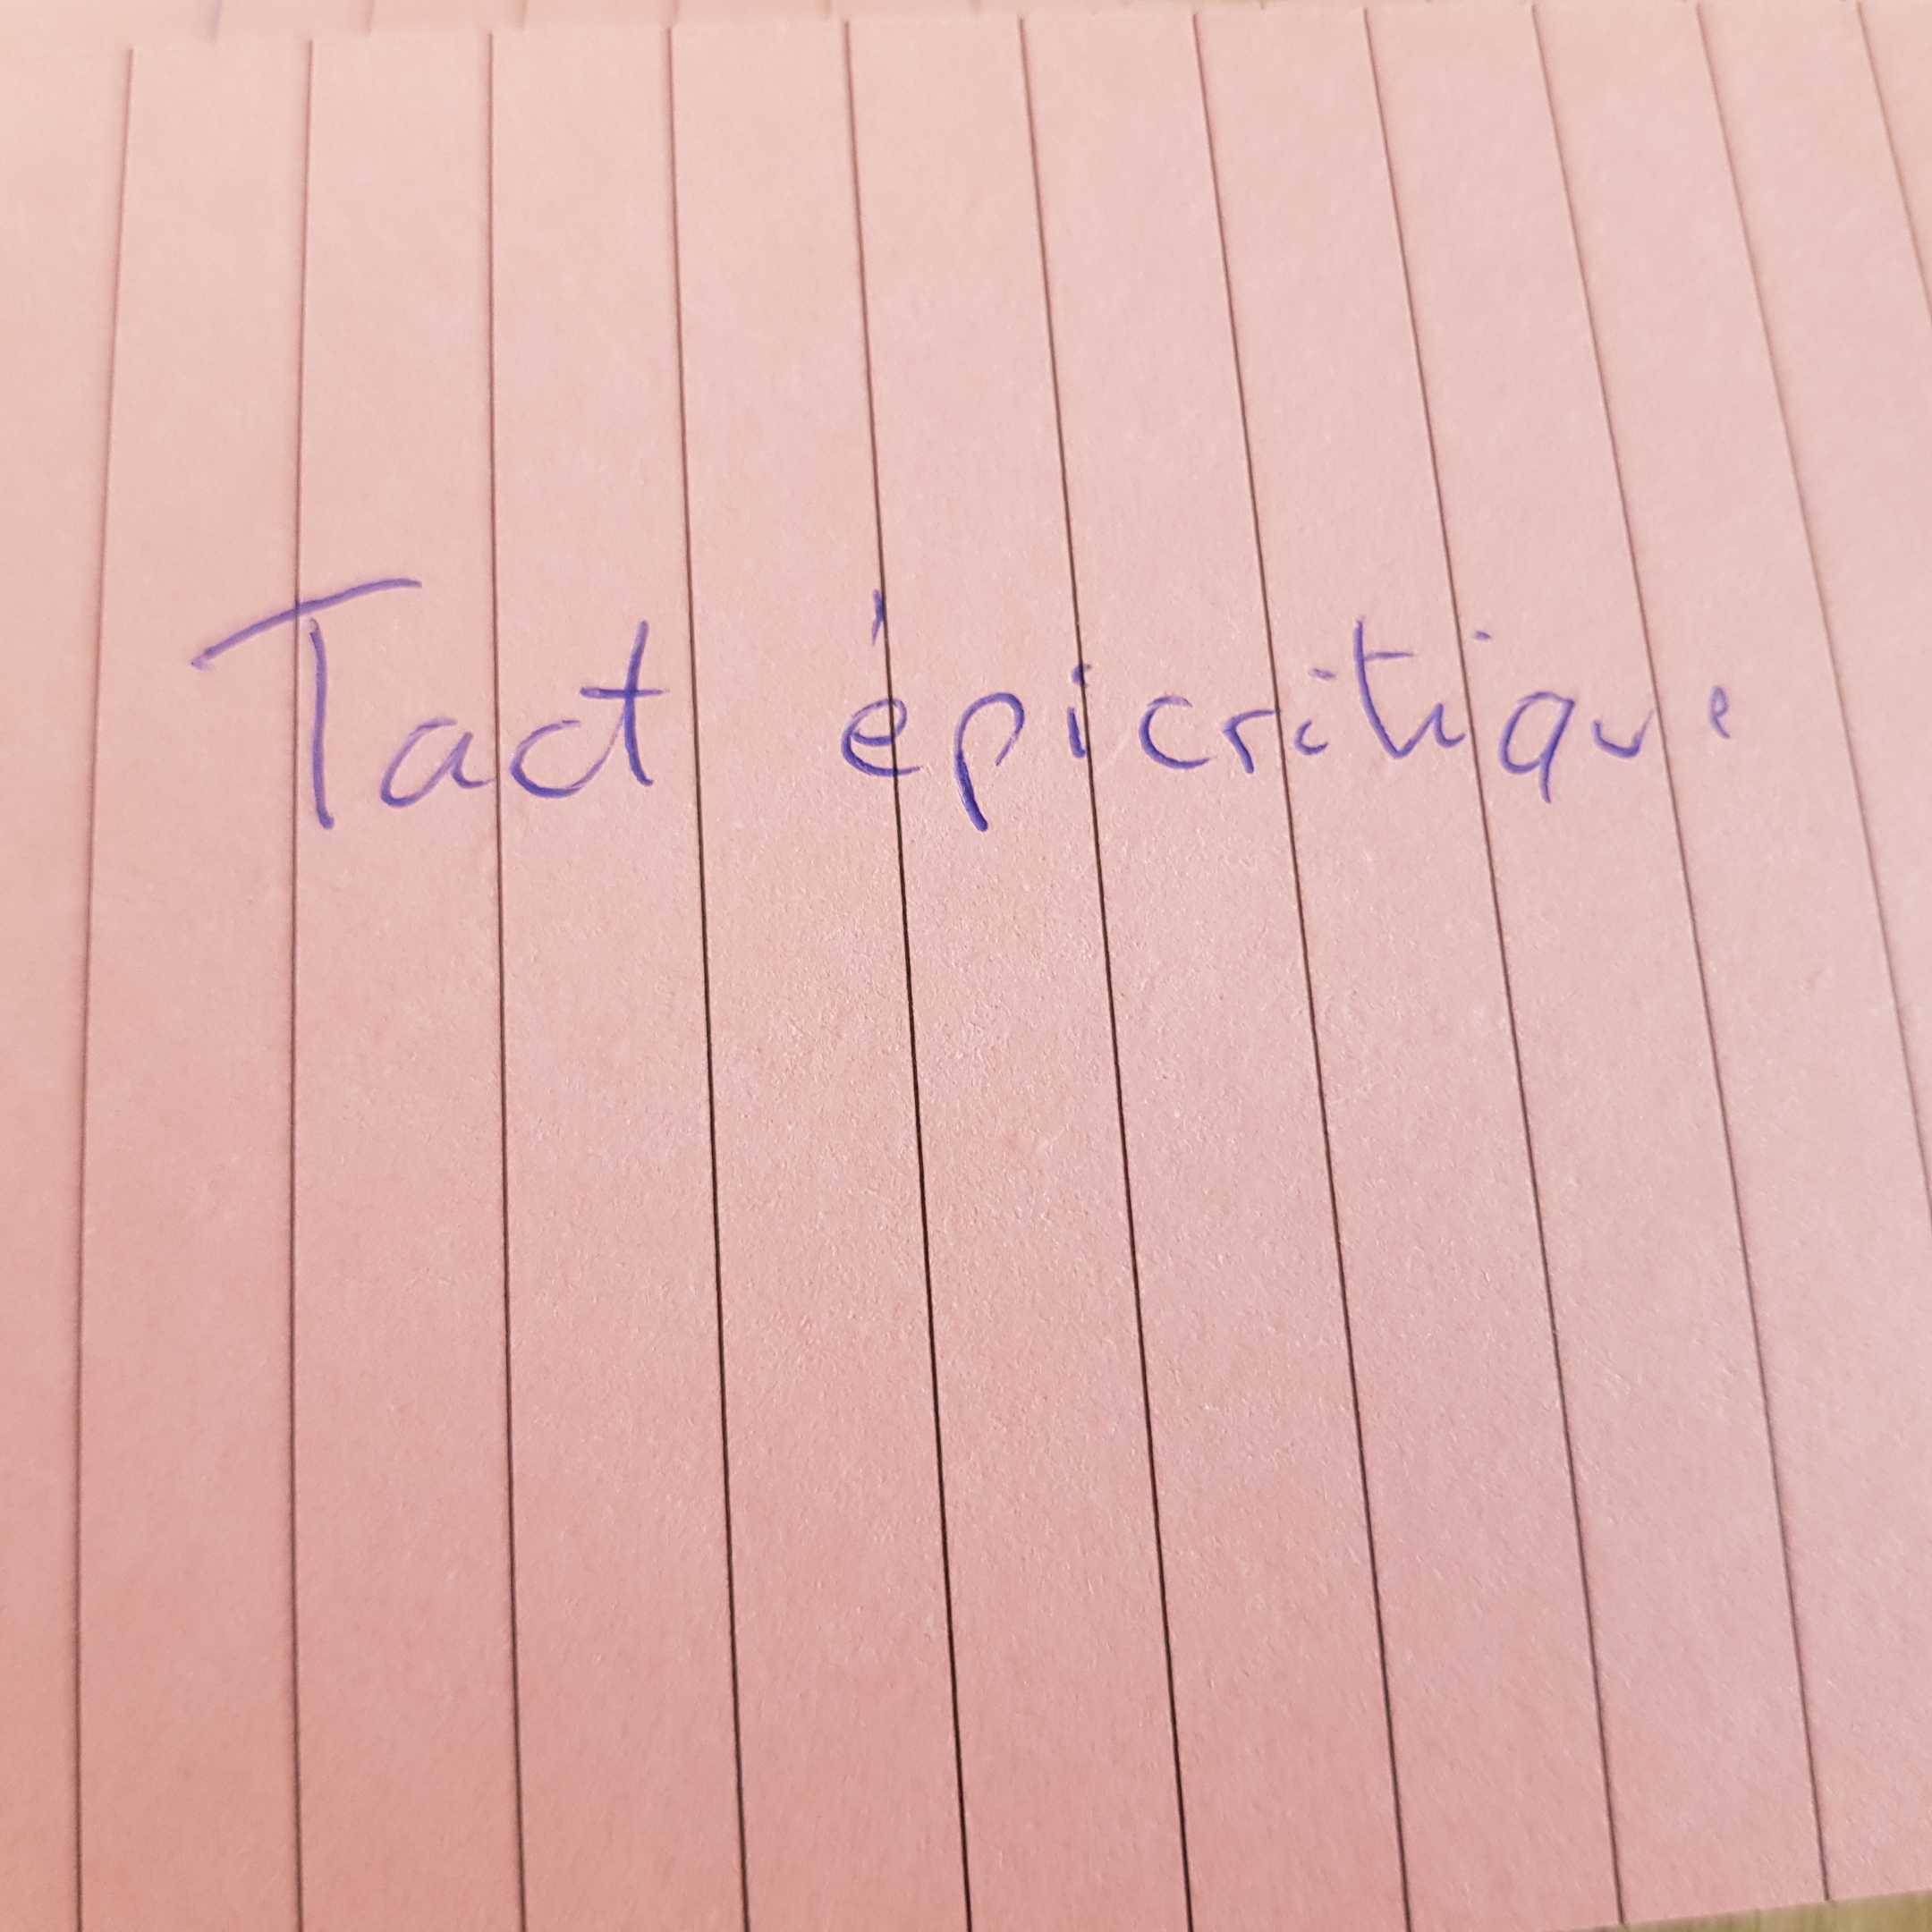 Tact épicritique